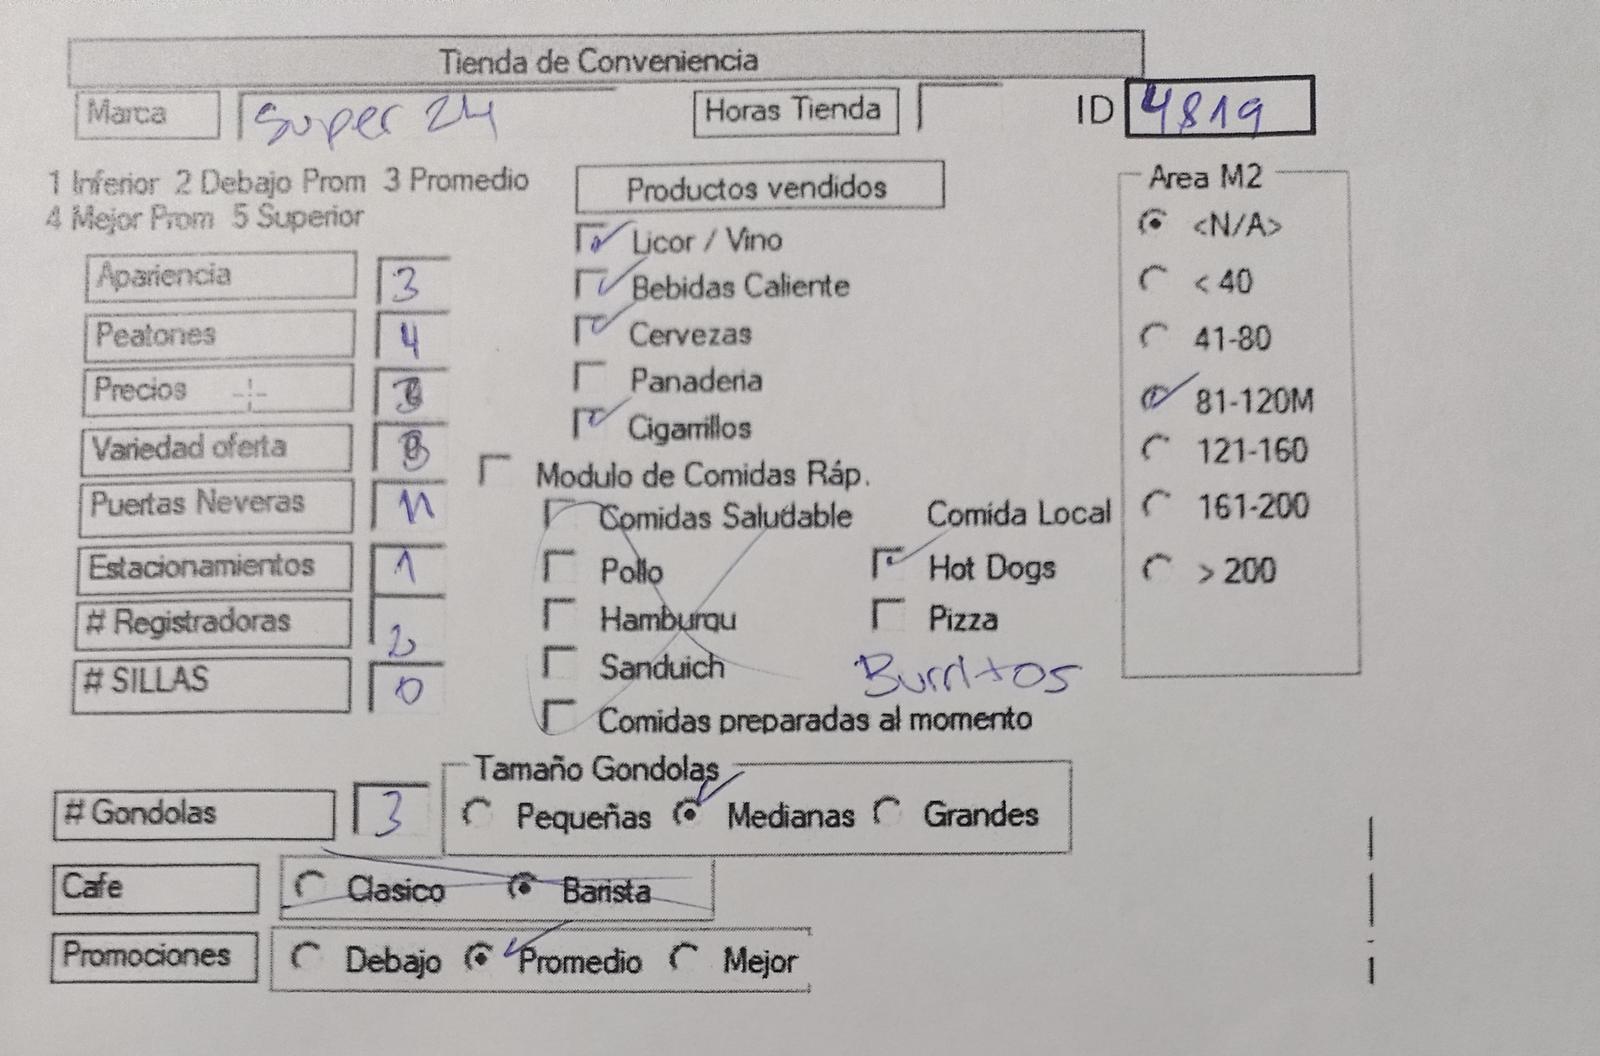 Tienda de Conveniencia
Marca Super 24 Horas Tienda ID 4819
1 Inferior 2 Debajo Prom 3 Promedio
4 Mejor Prom 5 Superior
Apariencia 3
Peatones 4
Precios
Variedad oferta
Puertas Neveras 11
Estacionamientos 1
# Registradoras 2
# SILLAS 0
Productos vendidos
Licor / Vino
Bebidas Caliente
Cervezas
Panaderia
Cigarrillos
Modulo de Comidas Ráp.
Comidas Saludable Comida Local
Pollo Hot Dogs
Hamburqu Pizza
Sanduich Burritos
Comidas preparadas al momento
Area M2
<N/A>
< 40
41-80
81-120M
121-160
161-200
> 200
Tamaño Gondolas
# Gondolas 3 Pequeñas Medianas Grandes
Cafe Clasico Barista
Promociones Debajo Promedio Mejor